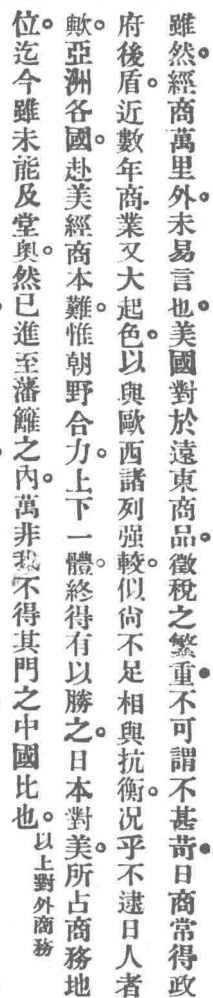 雖然經商萬里外未易言也美國對於遠東商品徵稅之繁重不可謂不甚苛日商常得政
府後盾近數年商業又大起色以與歐西諸列强較似尙不足相與抗衡况乎不逮日人者
歟亞洲各國赴美經商本難惟朝野合力上下一體終得有以勝之日本對美所占商務地
位迄今雖未能及堂奧然已進至藩籬之內萬非我不得其門之中國比也以上對外商務